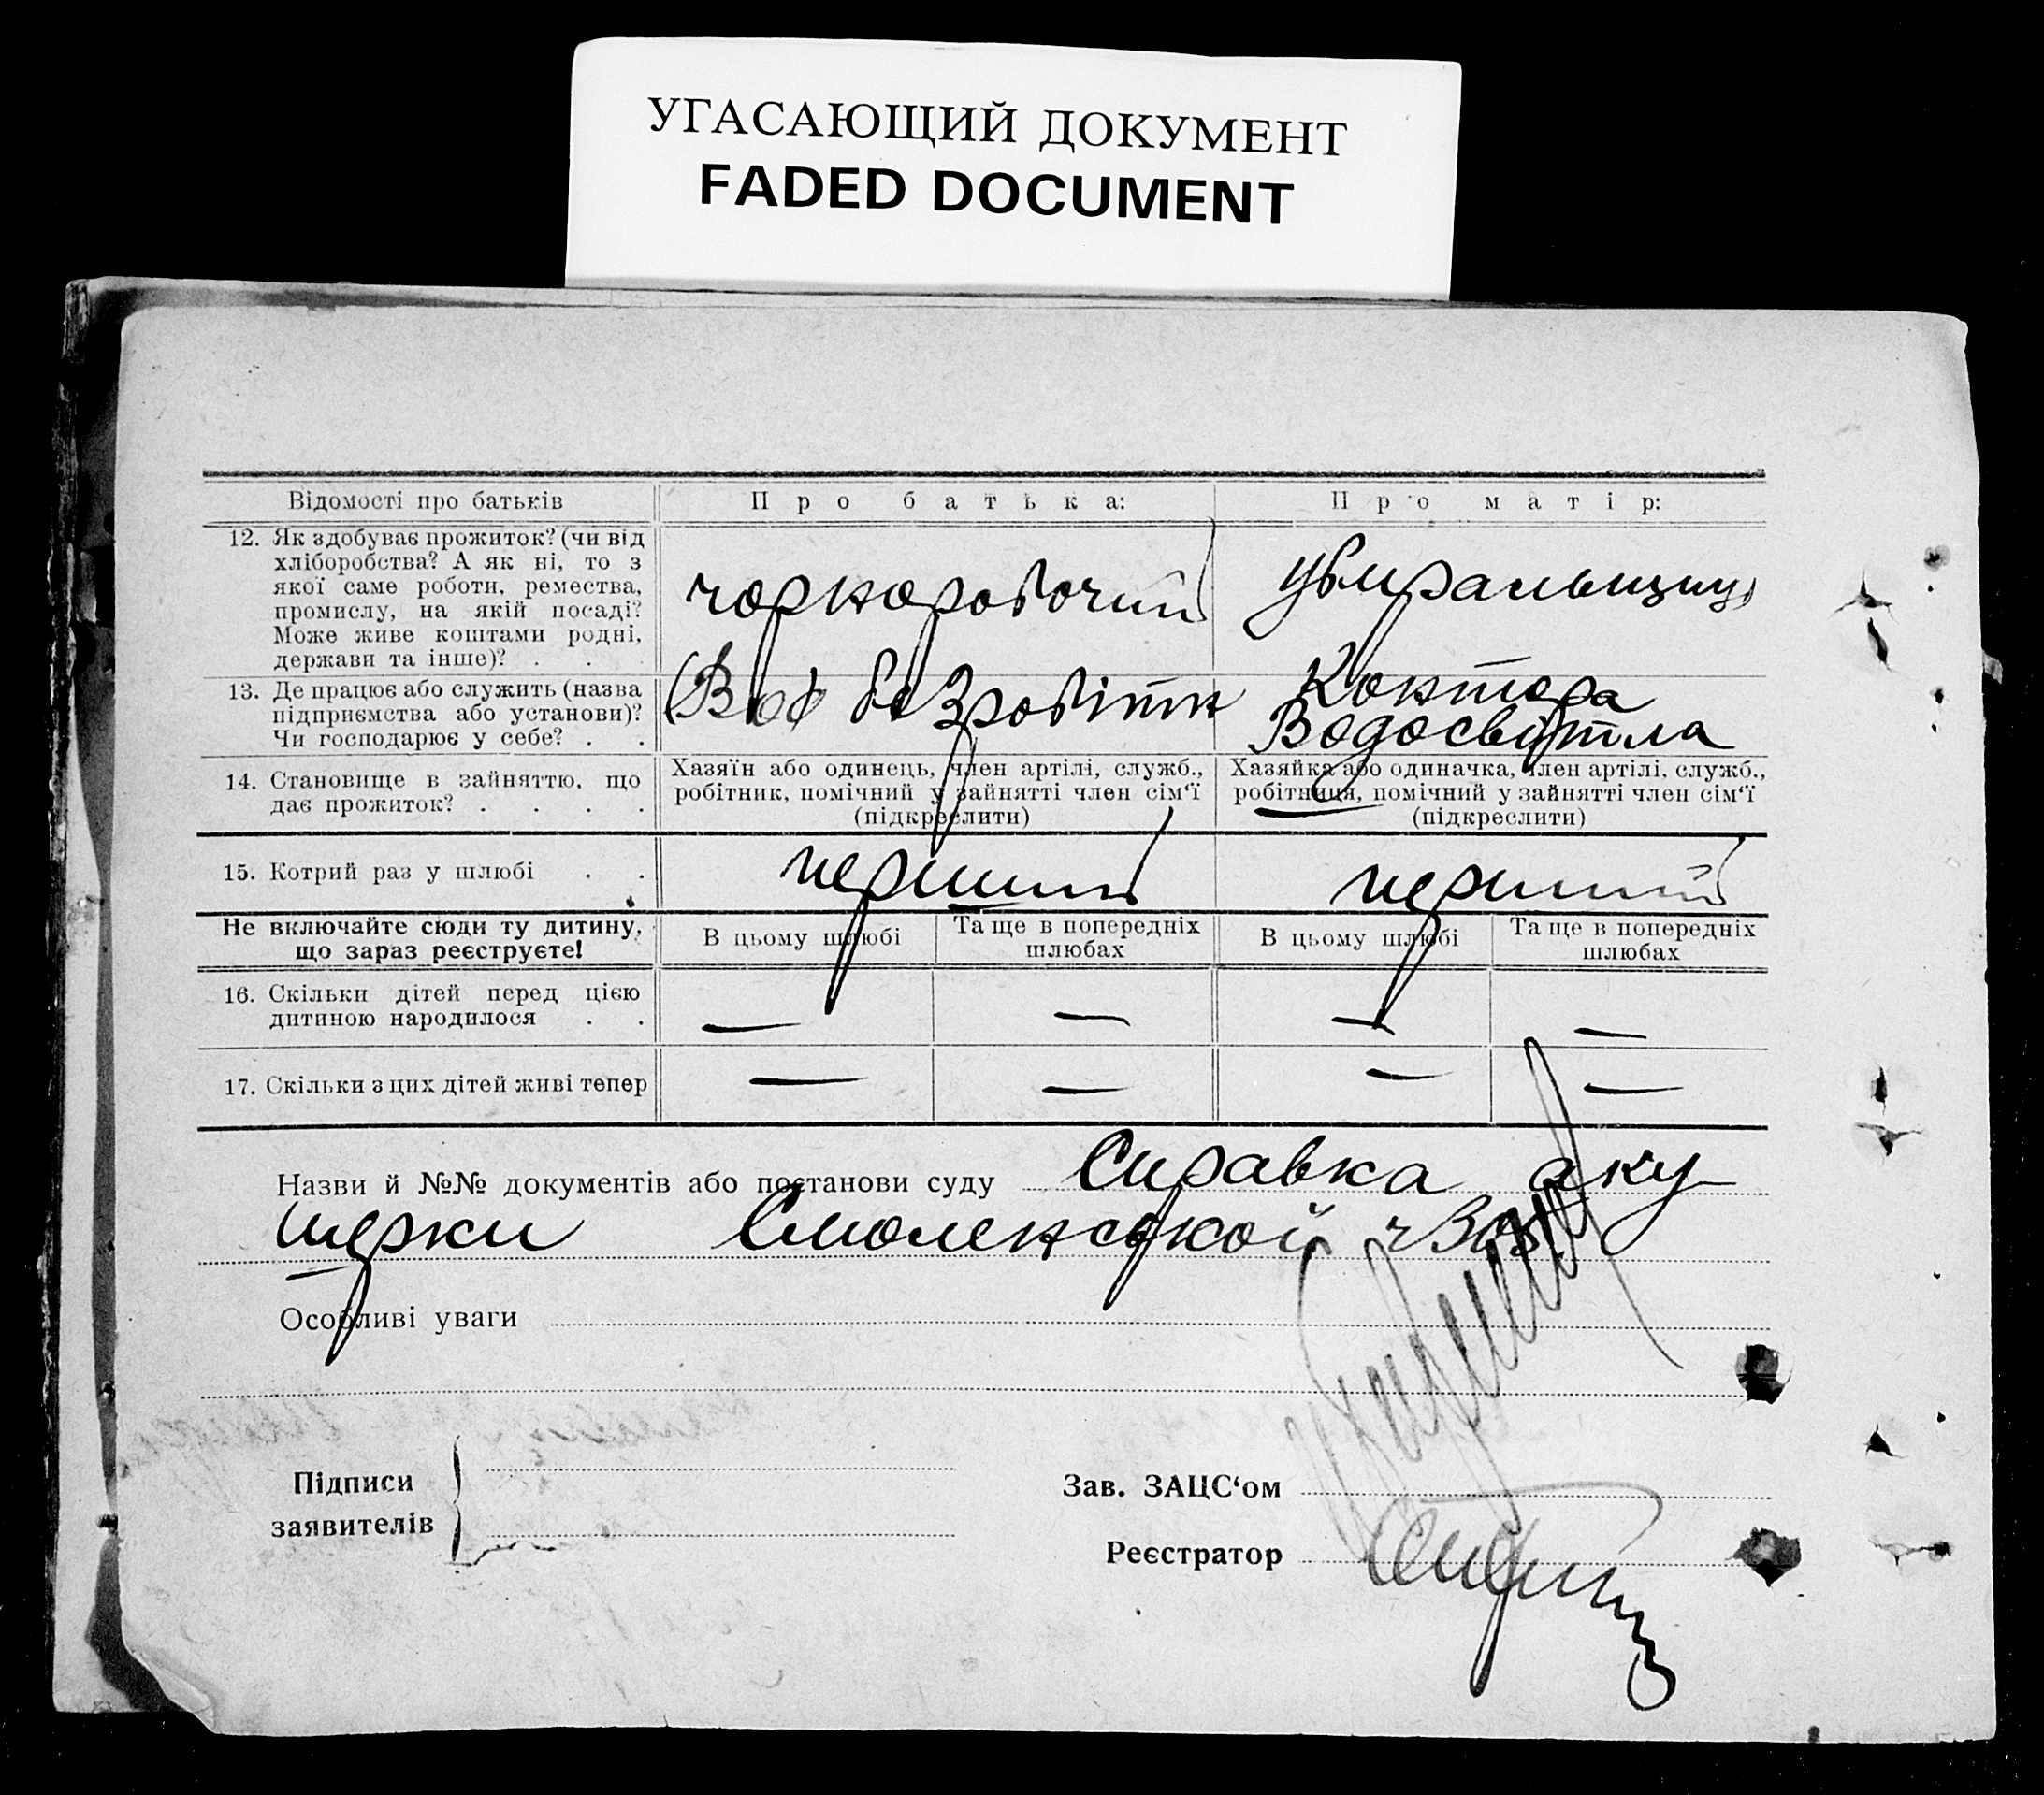 УГАСАЮЩИЙ ДОКУМЕНТ
FADED DOCUMENT
Відомості про батьків
Про батька:
Про матір:
12. Як здобуває прожиток? (чи від
хліборобства? А як ні, то з
якої саме роботи, ремества,
промислу, на якій посаді?
Може живе коштами родні,
держави та інше)? . .
чорноробочий
убиральщиця
13. Де працює або служить (назва
підприємства або установи)?
Чи господарює у себе? . .
безробітн
Контора
Водосвітла
14. Становище в зайняттю, що
дає прожиток? . . . .
Хазяїн або одинець, член артілі, служб.,
робітник, помічний у зайнятті член сім‘ї
(підкреслити)
Хазяйка або одиначка, член артілі, служб.,
робітниця, помічний у зайнятті член сім‘ї
(підкреслити)
15. Котрий раз у шлюбі . .
перший
перший
Не включайте сюди ту дитину,
що зараз реєструєте!
В цьому шлюбі
Та ще в попередніх
шлюбах
В цьому шлюбі
Та ще в попередніх
шлюбах
16. Скільки дітей перед цією
дитиною народилося . .
— — — —
17. Скільки з цих дітей живі тепер
— — — —
Назви й №№ документів або постанови суду Справка аку-
шерки Смоленской
Особливі уваги
Підписи
заявителів
Зав. ЗАЦС‘ом
Реєстратор